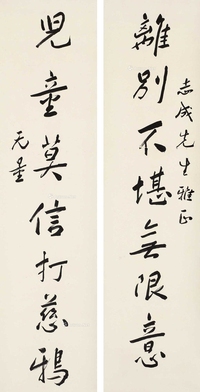 離別不堪無限意
志成先生雅正
兒童莫信打慈鴉
无量